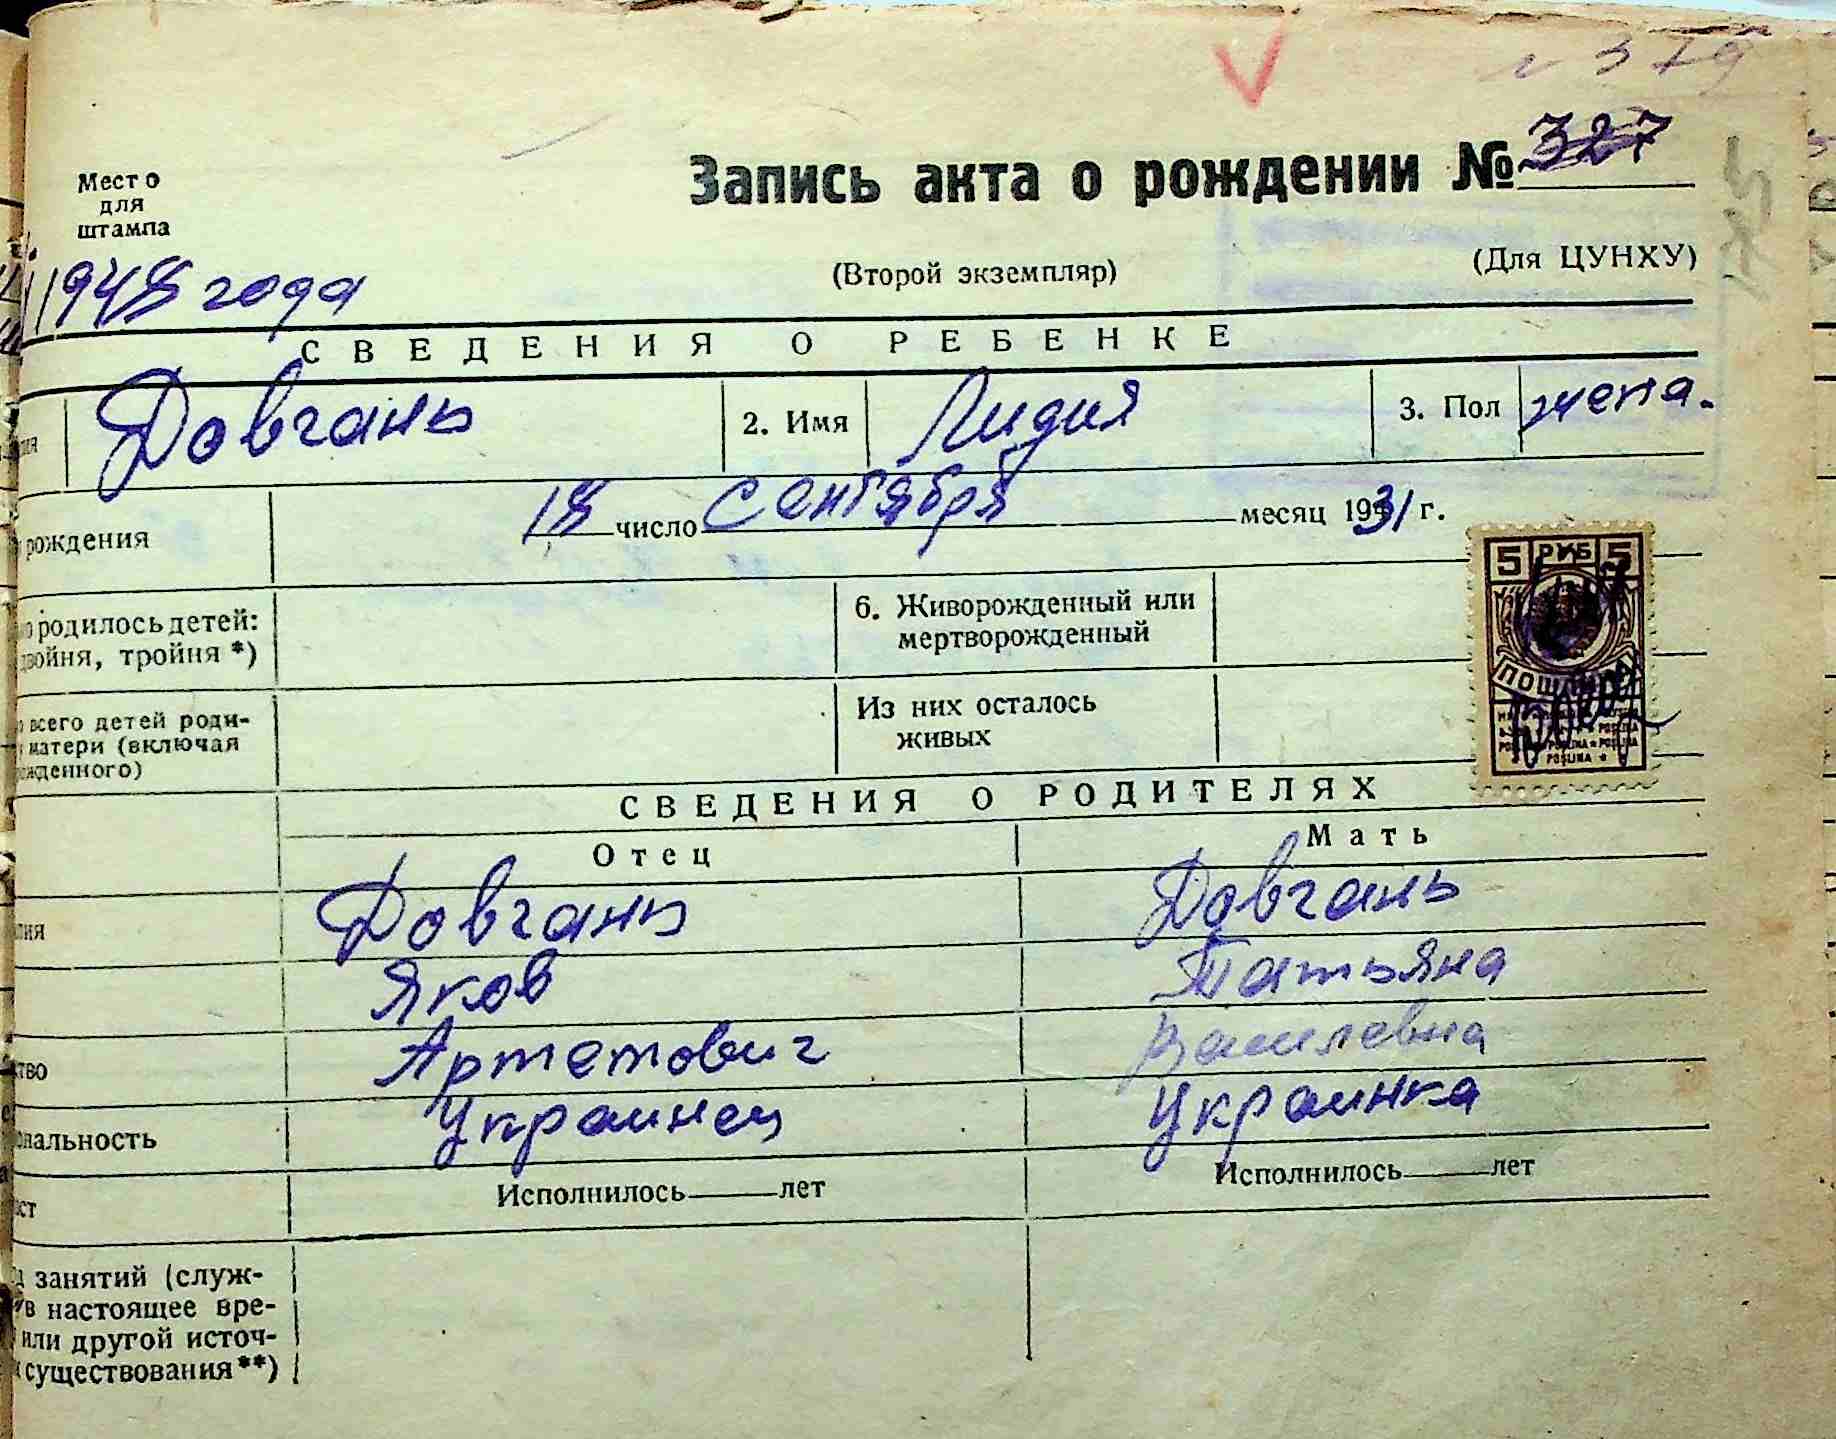 № 379
Запись акта о рождении № 327
Место
для
штампа
1948 года
(Второй экземпляр)
(Для ЦУНХУ)
СВЕДЕНИЯ О РЕБЕНКЕ
Довгань 2. Имя Лидия 3. Пол жена.
рождения 18 число сентября месяц 1931 г.
родилось детей:
двойня, тройня *)
6. Живорожденный или
мертворожденный
всего детей роди-
матери (включая
жденного)
Из них осталось
живых
5 РУБ 5
ПОШЛИНА
СВЕДЕНИЯ О РОДИТЕЛЯХ
Отец Мать
лия Довгань Довгань
Яков Татьяна
ство Артемович Василевна
ональность Украинец Украинка
ст Исполнилось лет Исполнилось лет
занятий (служ-
в настоящее вре-
или другой источ-
существования **)